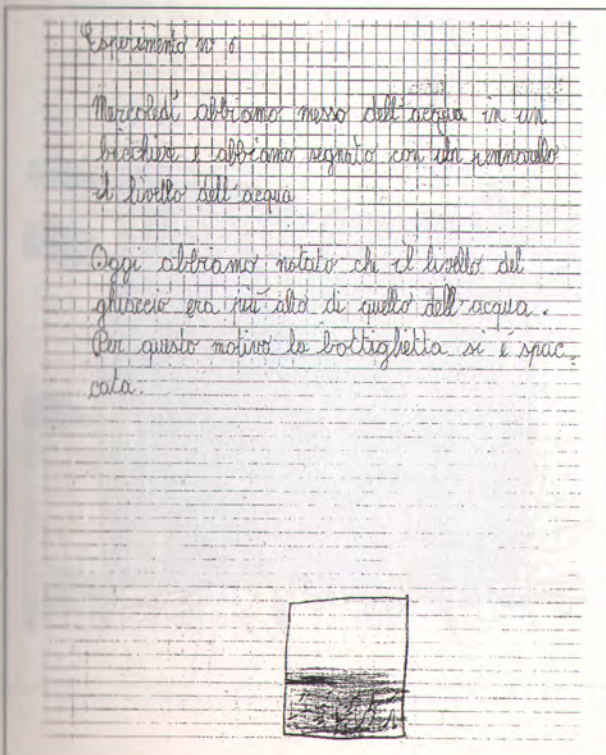 Esperimento n° 6
Mercoledì abbiamo messo dell'acqua in un
bicchiere e abbiamo segnato con un pennarello
il livello dell'acqua
Oggi abbiamo notato che il livello del
ghiaccio era più alto di quello dell'acqua.
Per questo motivo la bottiglietta si è spac-
cata.